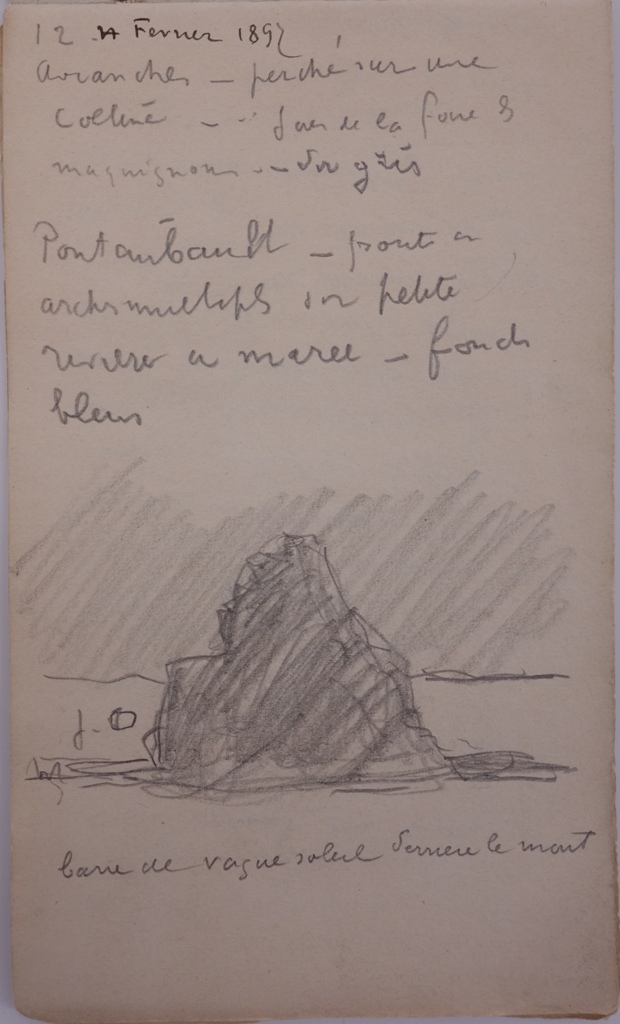 12 Fevrier 1897
Avranches – perché sur une
Colline – jour de la foire &
maquignons – ton gris
Pontaubault – pont a
arches multiples sur petite
riviere a maree – fonds
bleus
J. O
barre de vague soleil derriere le mont